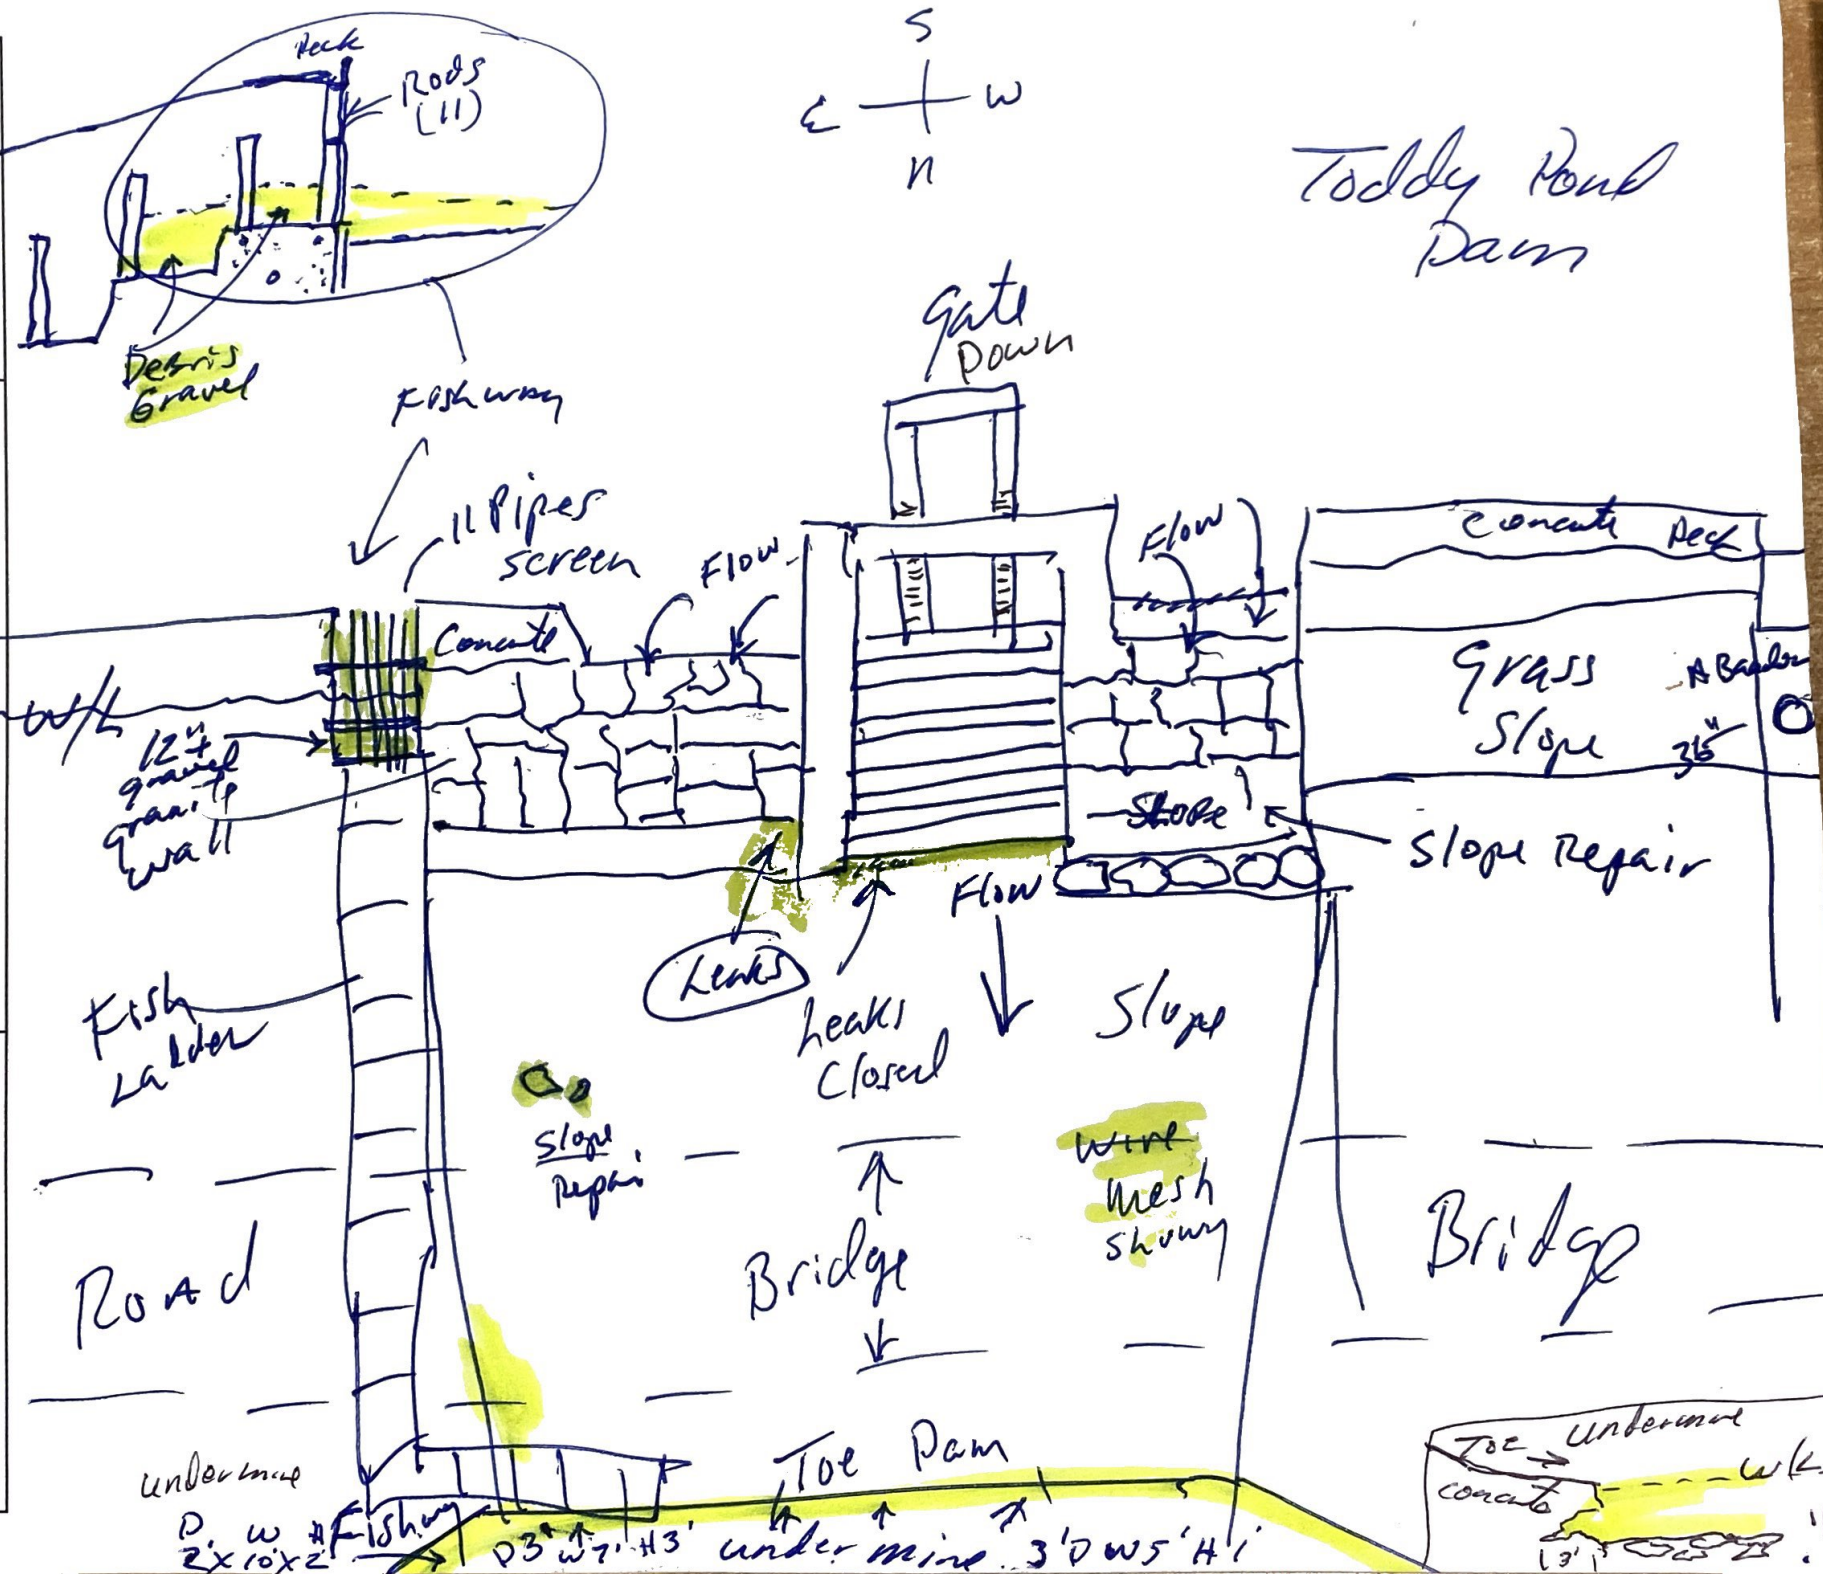 Deck
Rods
(11)
S
E W
N
Toddy Pond
Dam
Debris
Gravel
Fishway
Gate
Down
11 Pipes
screen
Flow
Flow
Concrete Deck
Concrete
W/L
12"+
gravel
granite
wall
Grass
Slope
36"
Slope
Slope Repair
Flow
Leaks
Leaks
Closed
Slope
Fish
Ladder
Slope
Repair
Wire
Mesh
Road
Bridge
Bridge
Toe Dam
undermine
D W H
2x10x2
Fishway
D3' W7' H3' undermine 3'D W5' H1'
Toe undermine
concrete